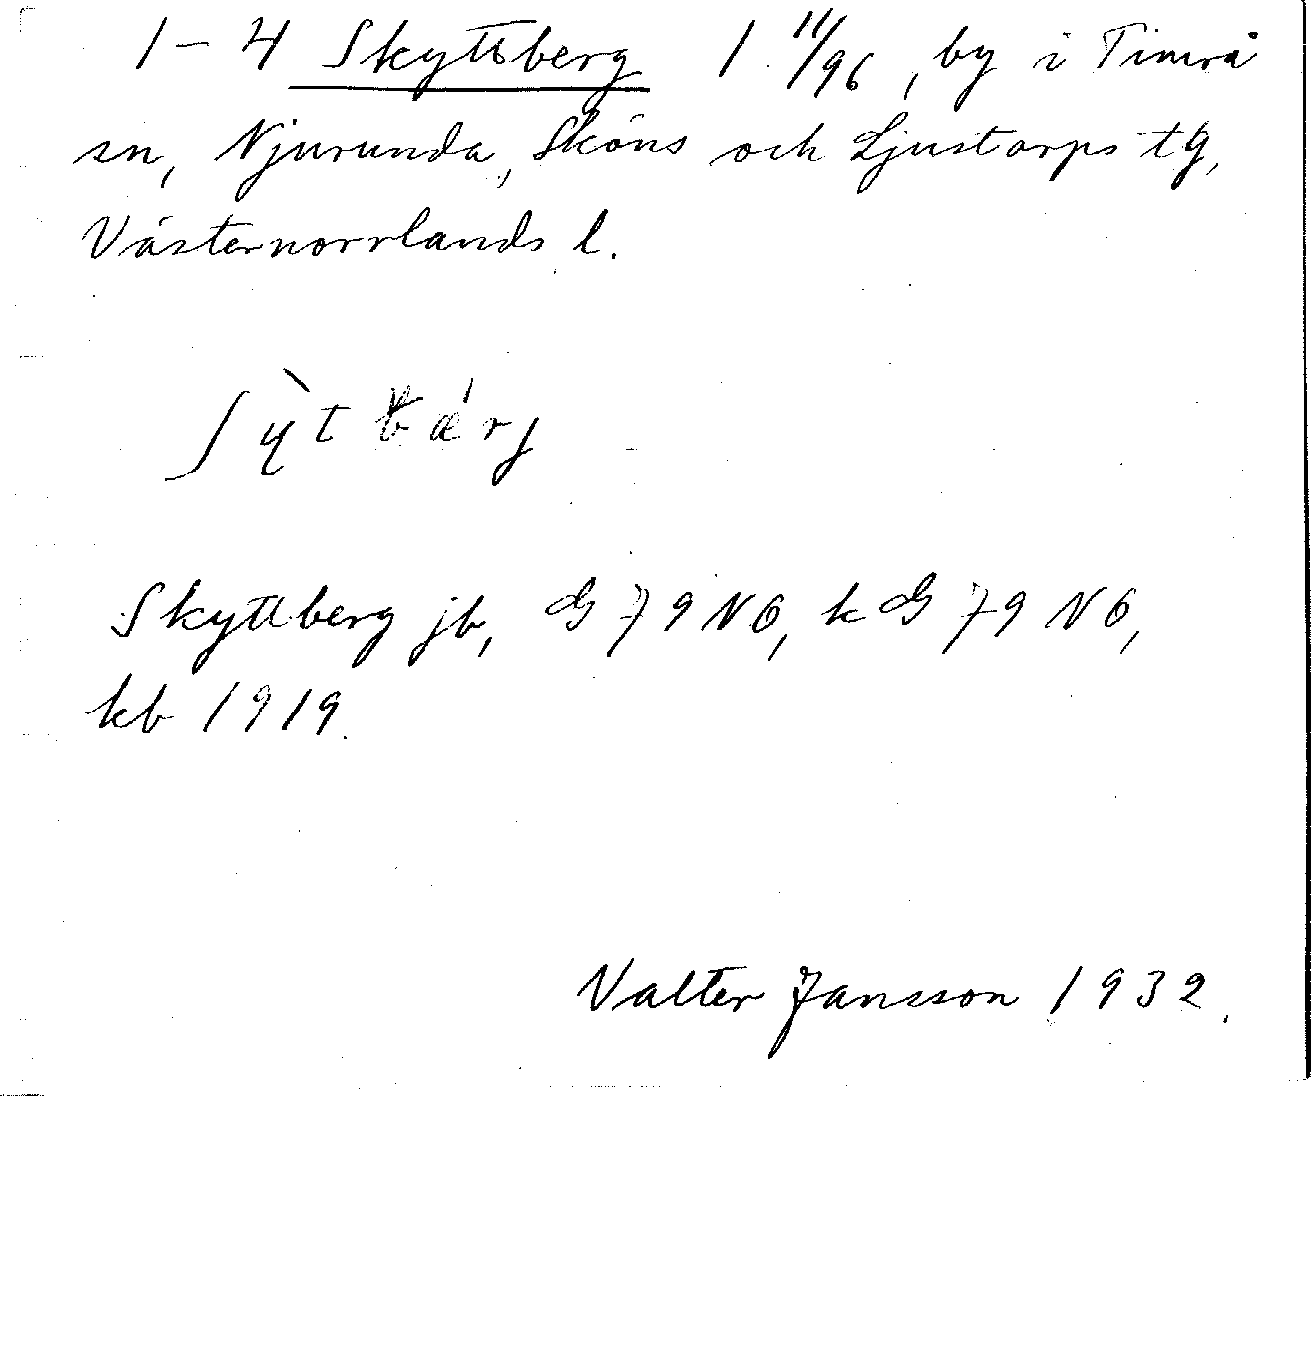 1–4 Skyttsberg 1 11/96, by i Timrå
sn, Njurunda, Sköns och Ljustorps tg,
Västernorrlands l.
Skyttberg jb, G 79 NÖ, k G 79 NÖ,
kb 1919.
Valter Jansson 1932.